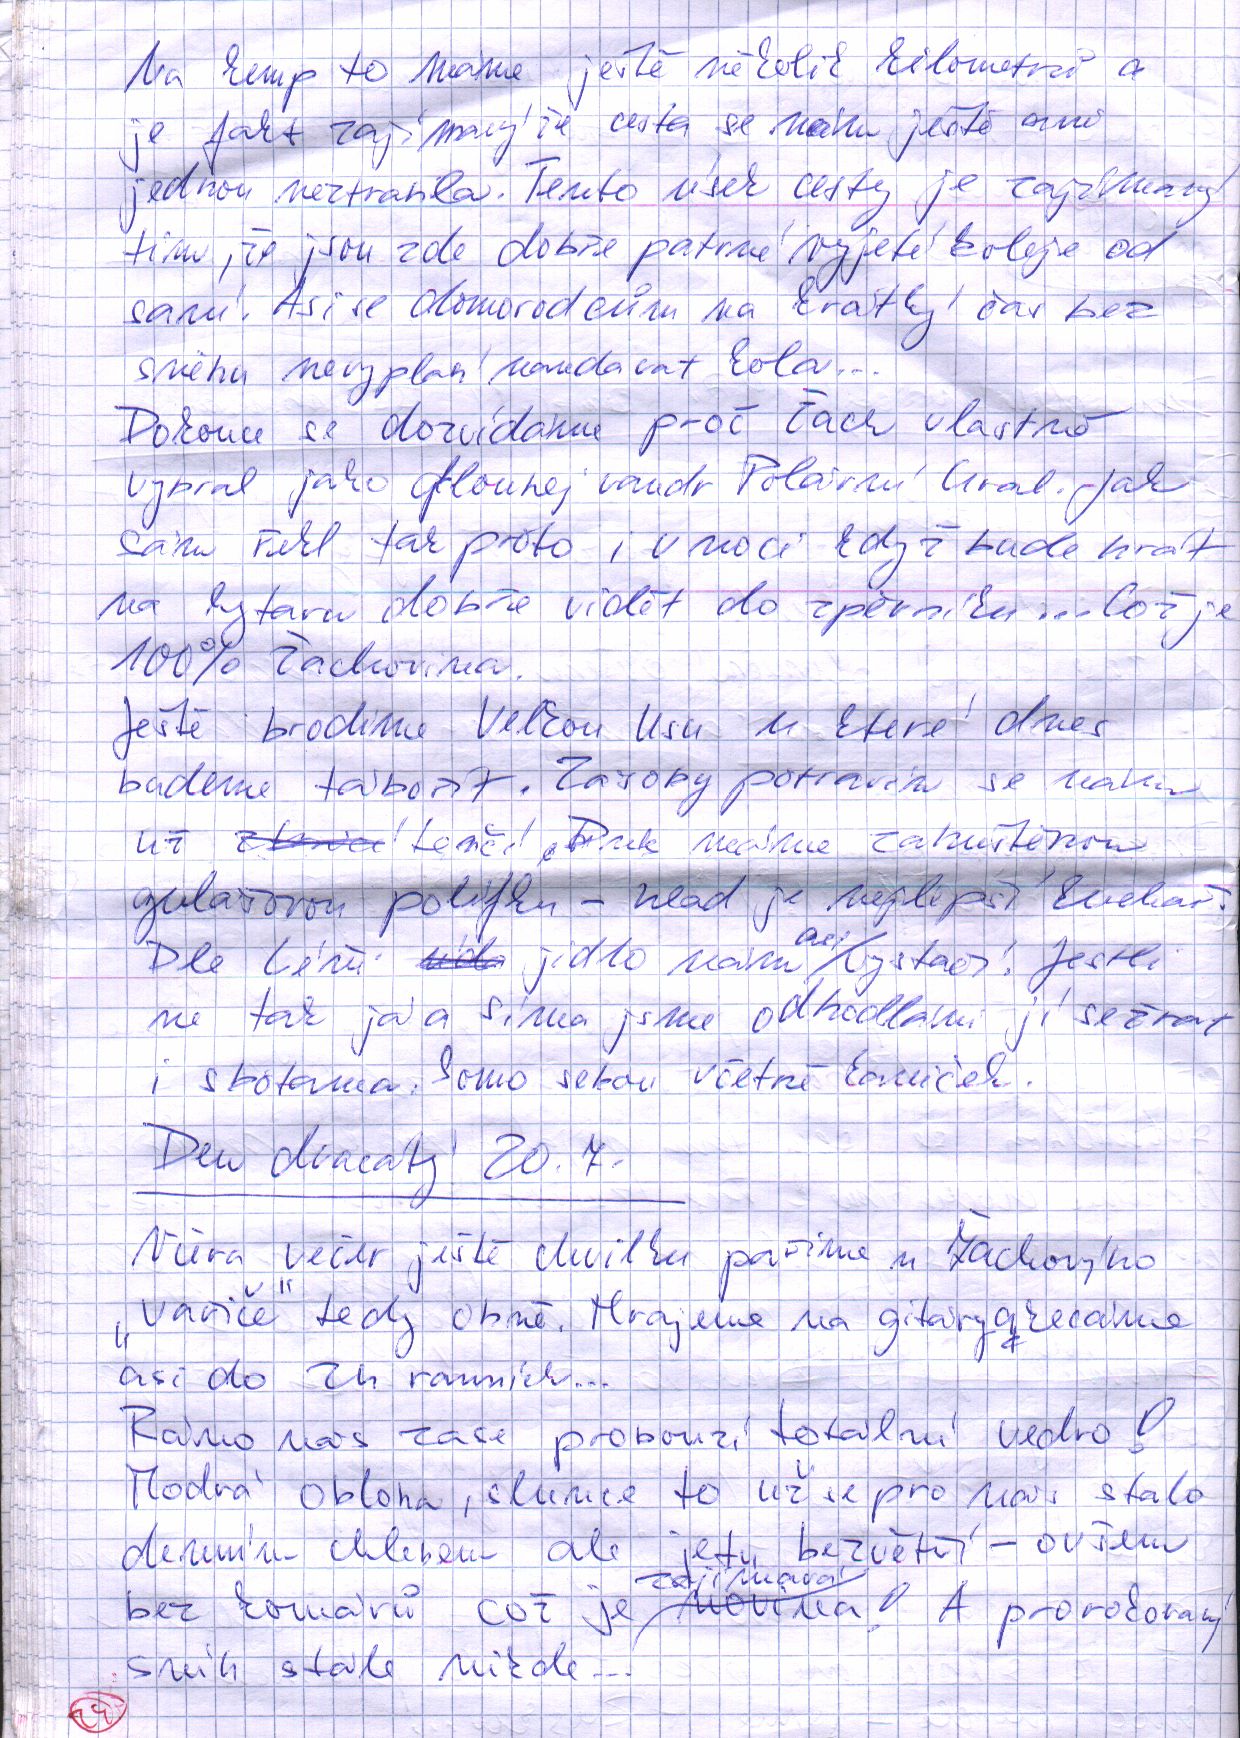 Na kemp to máme ještě několik kilometrů a
je fakt zajímavý že cesta se nám ještě ani
jednou neztratila. Tento úsek cesty je zajímavý
tím, že jsou zde dobře patrné vyjeté koleje od
saní. Asi se domorodcům na krátký čas bez
sněhu nevyplatí nandavat kola...
Dokonce se dozvídáme proč Žach vlastně
vybral jako dlouhej vandr Polární Ural. Jak
sám řekl tak proto i v noci když bude hrát
na kytaru dobře vidět do zpěvníku... Což je
100% Žachovina.
Ještě brodíme Velkou Usu u které dnes
budeme tábořit. Zásoby potravin se nám
už tenčí. Pak máme zahuštěnou
gulášovou polífku – hlad je nejlepší kuchař.
Dle jídlo nám asi vystačí. Jestli
ne tak já a Síma jsme odhodláni jí sežrat
i sbotama. Komo sebou včetně kaniček.
Den dvacátý 20. 7.
Včera večer ještě chvilku paříme u Žachovýho
„vařiče" tedy ohně. Hrajeme na gitáry a kecáme
asi do 2h ranních...
Ráno nás zase probouzí totální vedro!
Modrá obloha, slunce to už se pro nás stalo
denním chlebem ale je tu bezvětří – ovšem
bez komárů což je zajímavá novina! A prorokovaný
sníh stále nikde...
29